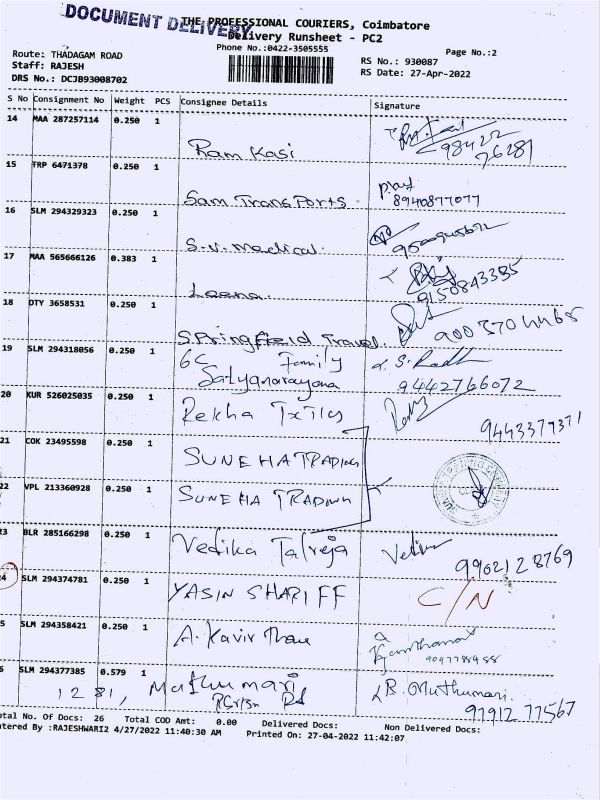 DOCUMENT DELIVERY
THE PROFESSIONAL COURIERS, Coimbatore
Delivery Runsheet - PC2
Phone No.:0422-3505555
Page No.:2
Route: THADAGAM ROAD
Staff: RAJESH
DRS No.: DCJB93008702
RS No.: 930087
RS Date: 27-Apr-2022
S No Consignment No Weight PCS Consignee Details Signature
14 MAA 287257114 0.250 1
Ram Kasi 98422
76281
15 TRP 6471378 0.250 1
Sam Transports 8940877077
16 SLM 294329323 0.250 1
S.V. medical
17 MAA 565666126 0.383 1
Leena 9150843385
18 DTY 3658531 0.250 1
Springfield Travel
19 SLM 294318056 0.250 1
6C Family
Satyanarayana 9442766072
20 KUR 526025035 0.250 1
Rekha 9443377371
21 COK 23495598 0.250 1
SUNEHA TRADING
22 VPL 213360928 0.250 1
SUNEHA TRADING
23 BLR 285166298 0.250 1
Vedika Talreja 9902128769
24 SLM 294374781 0.250 1
YASIN SHARIFF C/N
5 SLM 294358421 0.250 1
A. Kavir
6 SLM 294377385 0.579 1
1281, Muthumari R. Muthumari
91912 77567
otal No. Of Docs: 26 Total COD Amt: 0.00 Delivered Docs: Non Delivered Docs:
ntered By :RAJESHWARI2 4/27/2022 11:40:30 AM Printed On: 27-04-2022 11:42:07